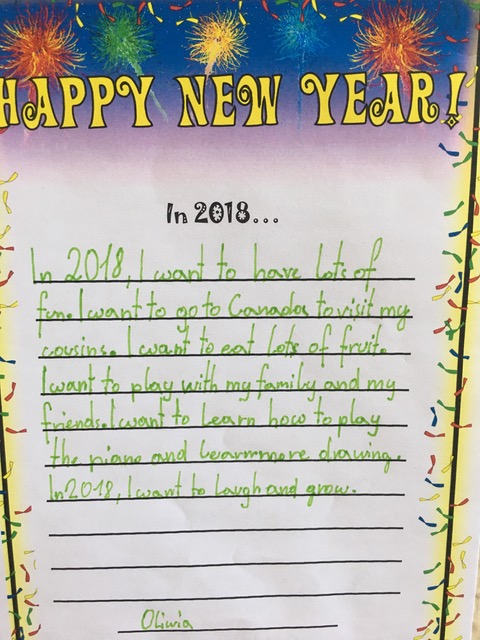 HAPPY NEW YEAR!
In 2018...
In 2018, I want to have lots of
fun. I want to go to Canada to visit my
cousins. I want to eat lots of fruit.
I want to play with my family and my
friends. I want to learn how to play
the piano and learn more drawing.
In 2018, I want to laugh and grow.
Olivia